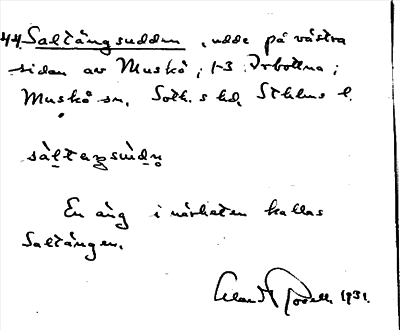 44. Saltängsudden, udde på västra
sidan av Muskö, 1-3 Arbottna;
Muskö sn, Soth.s hd, Sthlms l.
sàltaŋsùdn̥
En äng i närheten kallas
Saltängen.
1931.